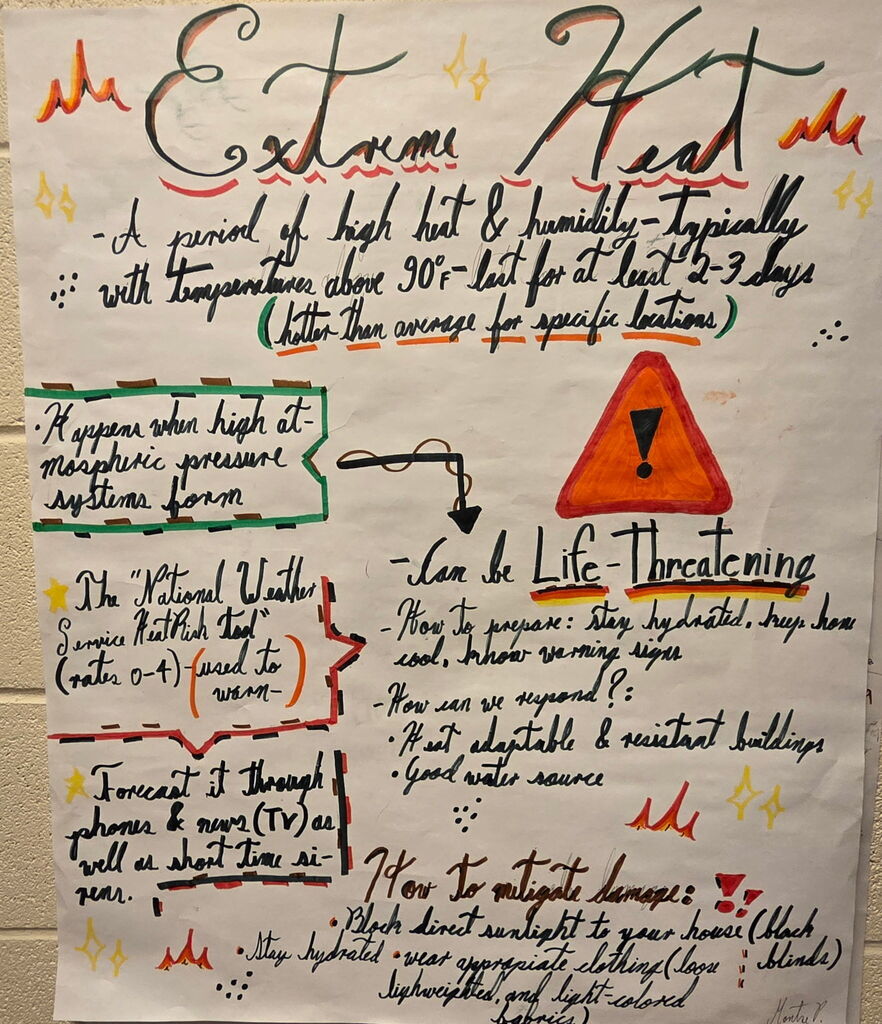 Extreme Heat
- A period of high heat & humidity - typically
with temperatures above 90°F - last for at least 2-3 days
(hotter than average for specific locations)
• Happens when high at-
mospheric pressure
systems form
The "National Weather
Service HeatRish Tool"
(rates 0-4) - (used to
warn-)
Forecast it through
phones & news (TV) as
well as short time si-
rens.
- Can be Life-Threatening
- How to prepare: stay hydrated, keep home
cool, know warning signs
- How can we respond?:
• Heat adaptable & resistant buildings
• Good water source
How to mitigate damage:
• Block direct sunlight to your house (black
blinds)
• Stay hydrated
• wear appropiate clothing (loose
lighweighted, and light-colored
fabrics)